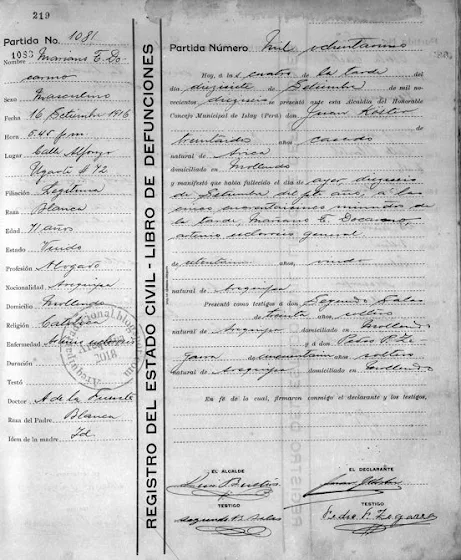 219
Partida No. 1081
1083 Mariano E. Do-
Nombre
carmo
Sexo Masculino
Fecha 16 Setiembre 1916
Hora 5.45 p m
Lugar Calle Alfonso
Ugarte # 72
Filiación Legítima
Raza Blanca
Edad 71 años
Estado Viudo
Profesión Abogado
Nacionalidad Arequipa
Domicilio Mollendo
Religión Católica
Enfermedad
Duración
Testó
Doctor A de la Fuente
Raza del Padre
Blanca
Idem de la madre Id
REGISTRO DEL ESTADO CIVIL - LIBRO DE DEFUNCIONES
Partida Número Mil ochentiuno
Hoy, á las cuatro de la tarde del
día diecisiete de Setiembre de mil no-
vecientos dieciseis se presentó ante esta Alcaldía del Honorable
Concejo Municipal de Islay (Perú) don Juan
de
años, casado
natural de Arica
domiciliado en Mollendo
y manifestó que había fallecido el día de ayer dieciseis
de Setiembre del pte año, á las
cinco cuarenticinco minutos de
la tarde Mariano E. Docarmo,
arterio esclerosis general
de años, viudo
natural de Arequipa
Presentó como testigos á don Segundo Salas
de treinta años, soltero
natural de Arequipa domiciliado en Mollendo
y á don Pedro P. Ze-
garra de años soltero
natural de Arequipa domiciliado en Mollendo
En fe de lo cual, firmaron conmigo el declarante y los testigos,
EL ALCALDE
EL DECLARANTE
TESTIGO
Segundo B. Salas
TESTIGO
Pedro P. Zegarra
2018